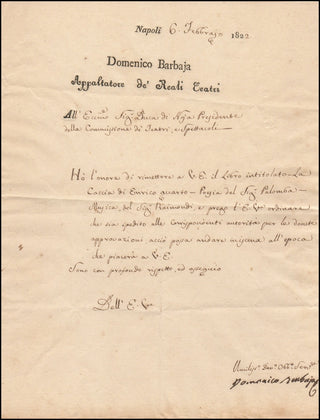 Napoli 6. Febbrajo 1822
Domenico Barbaja
Appaltatore de' Reali Teatri
All' Eccmo Sigr Duca di Noja Presidente
della Commissione di Teatri, e Spettacoli —
Hò l'onore di rimettere a V. E. il Libro intitolato — La
Caccia di Enrico quarto — Poesia del Sigr Palomba —
Musica, del Sigr Raimondi, e prego l'E. Vra ordinare
che sia spedito alle corrispondenti autorità per le dovute
approvazioni acciò possa andare in iscena all'epoca
che piacerà a V. E.
Sono con profondo rispetto, ed ossequio
Dell' E. Vra
Domenico Barbaja